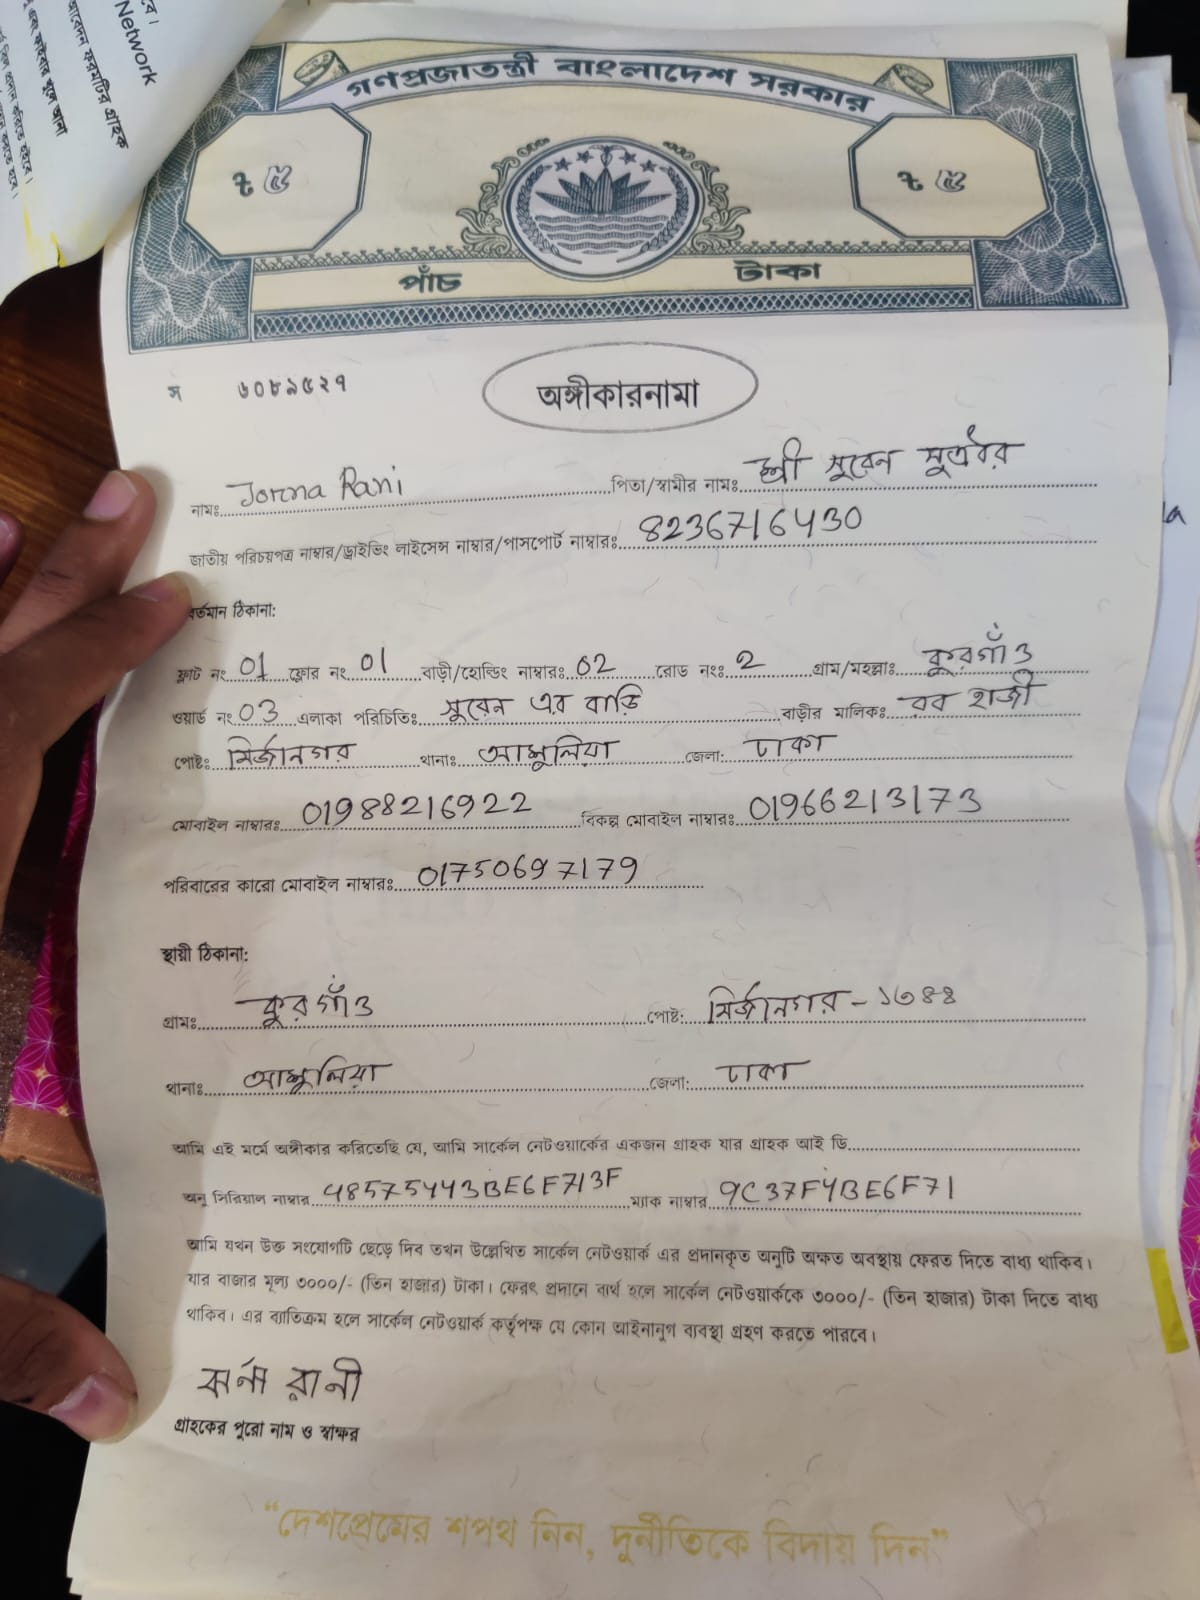 বে।
Network
আবেদন ফরমটির গ্রাহক
গণপ্রজাতন্ত্রী বাংলাদেশ সরকার
৳ ৫ ৳ ৫
পাঁচ টাকা
স ৬০৮৯৫২৭
অঙ্গীকারনামা
নামঃ Jorna Rani পিতা/স্বামীর নামঃ শ্রী সুরেন সুত্রধর
জাতীয় পরিচয়পত্র নাম্বার/ড্রাইভিং লাইসেন্স নাম্বার/পাসপোর্ট নাম্বারঃ 8236716430
বর্তমান ঠিকানা:
ফ্লাট নং 01 ফ্লোর নং 01 বাড়ী/হোল্ডিং নাম্বারঃ 02 রোড নংঃ 2 গ্রাম/মহল্লাঃ কুরগাঁও
ওয়ার্ড নং 03 এলাকা পরিচিতিঃ সুরেন এর বাড়ি বাড়ীর মালিকঃ রব হাজী
পোষ্টঃ মির্জানগর থানাঃ আশুলিয়া জেলা: ঢাকা
মোবাইল নাম্বারঃ 01988216922 বিকল্প মোবাইল নাম্বারঃ 01966213173
পরিবারের কারো মোবাইল নাম্বারঃ 01750697179
স্থায়ী ঠিকানা:
গ্রামঃ কুরগাঁও পোষ্ট: মির্জানগর - ১৩৪৪
থানাঃ আশুলিয়া জেলা: ঢাকা
আমি এই মর্মে অঙ্গীকার করিতেছি যে, আমি সার্কেল নেটওয়ার্কের একজন গ্রাহক যার গ্রাহক আই ডি
অনু সিরিয়াল নাম্বার 485754443BE6F713F ম্যাক নাম্বার 9C37F4BE6F71
আমি যখন উক্ত সংযোগটি ছেড়ে দিব তখন উল্লেখিত সার্কেল নেটওয়ার্ক এর প্রদানকৃত অনুটি অক্ষত অবস্থায় ফেরত দিতে বাধ্য থাকিব।
যার বাজার মূল্য ৩০০০/- (তিন হাজার) টাকা। ফেরৎ প্রদানে ব্যর্থ হলে সার্কেল নেটওয়ার্ককে ৩০০০/- (তিন হাজার) টাকা দিতে বাধ্য
থাকিব। এর ব্যতিক্রম হলে সার্কেল নেটওয়ার্ক কর্তৃপক্ষ যে কোন আইনানুগ ব্যবস্থা গ্রহণ করতে পারবে।
ঝর্না রানী
গ্রাহকের পুরো নাম ও স্বাক্ষর
“দেশপ্রেমের শপথ নিন, দুর্নীতিকে বিদায় দিন”